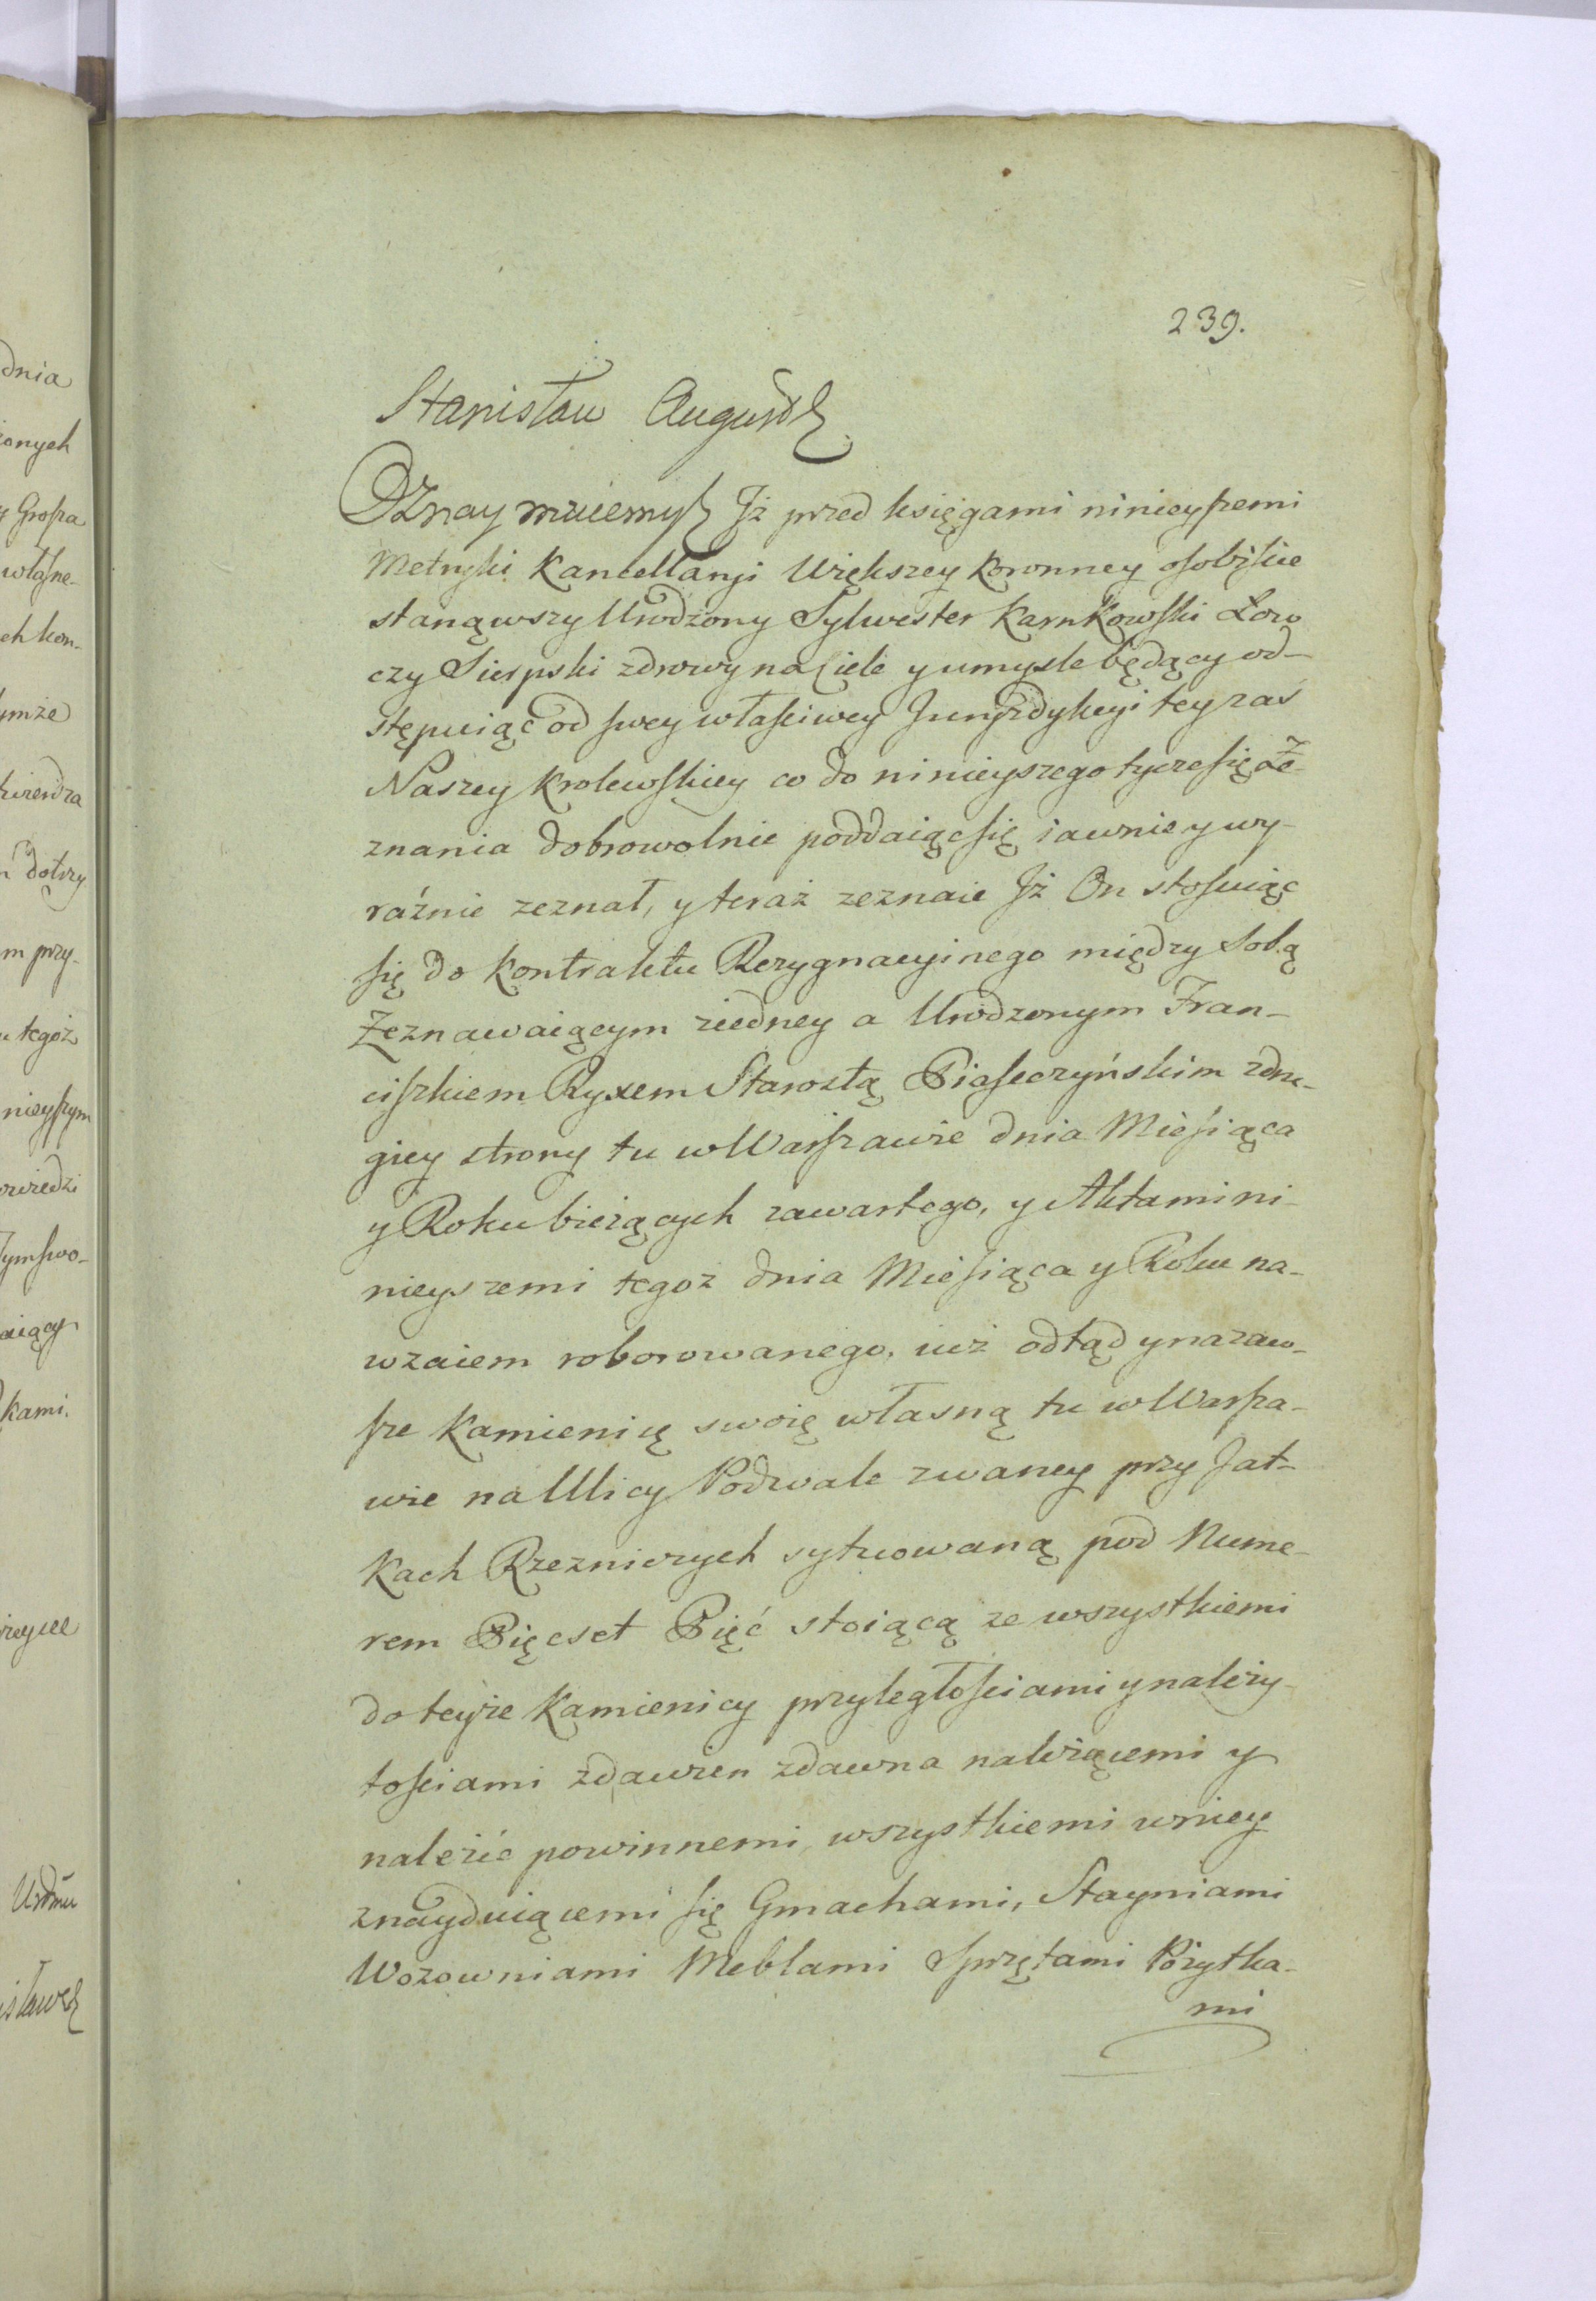 dnia
zonych
y Grosza
własne-
ch kon-
ymże
twierdza
dotrzy
m przy-
u tegoż
nieyszym
powiedzi
Tym swo-
aiący
kami.
Urodzu
isław
239.
Stanisław August
Oznaymuiemy Jż przed księgami ninieyszemi
Metryki Kancellaryi Większey Koronney osobiście
stanąwszy Urodzony Sylwester Karnkowski Łow
czy Sierpski zdrowy na ciele y umysle będący od-
stępuiąc od swey własciwey Juryzdykcyi tey zas
Naszey Krolewskiey co do ninieyszego tycze się Ze-
znania dobrowolnie poddaiąc się iawnie y wy-
raźnie zeznał, y teraż zeznaie Jż On stosuiąc
się do kontraktu Rezygnacyinego między Sobą
Zeznawaiącym ziedney a Urodzonym Fran-
ciszkiem Ryxem Starostą Piaseczyńskim zdru-
giey strony tu w Warszawie dnia Miesiąca
y Roku bieżących zawartego, y Aktami ni-
nieyszemi tegoż dnia Miesiąca y Roku na-
wzaiem roborowanego, iuż odtąd y nazaw-
sze Kamienicę swoię własną tu w Warsza-
wie na Ulicy Podwale zwaney przy Jat-
kach Rzezniczych sytuowaną pod Nume-
rem Pięcset Pięć stoiącą ze wszystkiemi
do teyże Kamienicy przyległosciami y należy-
tosciami zdawien zdawna należącemi y
należić powinnemi wszystkiemi w niey
znayduiącemi się Gmachami, Stayniami
Wozowniami Meblami Sprzętami Pożytka-
mi